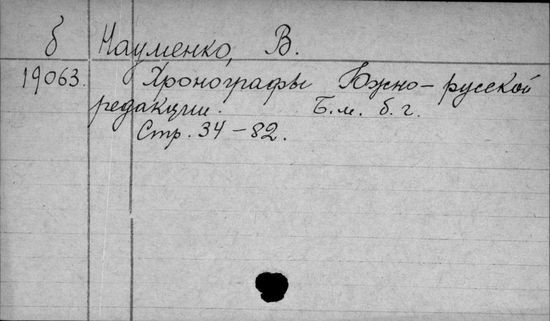 б Науменко, В.
19063. Хронографы Южно-русской
редакции. Б.м. б.г.
Стр. 34-82.